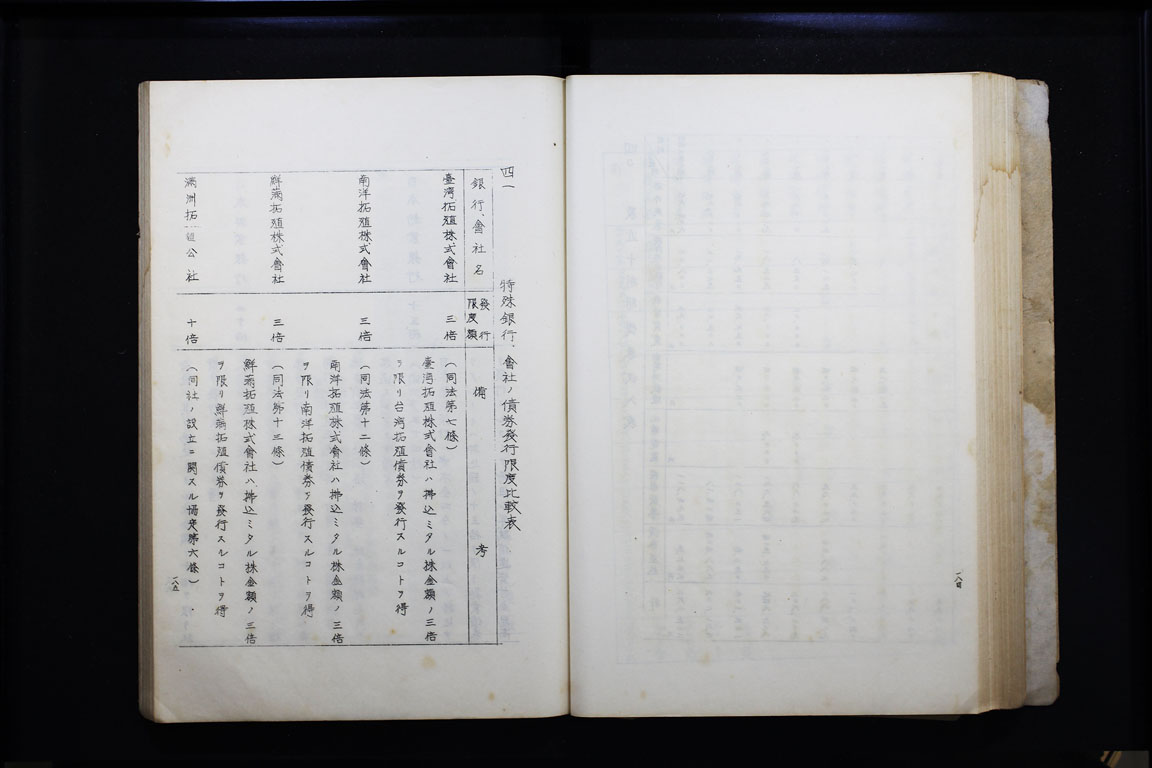 一八四
四一　特殊銀行、會社ノ債券發行限度比較表
銀行、會社名
發行限度額
備考
臺灣拓殖株式會社
三倍
(同法第七條)
臺灣拓殖株式會社ハ拂込ミタル株金額ノ三倍
ヲ限リ台湾拓殖債券ヲ發行スルコトヲ得
南洋拓殖株式會社
三倍
(同法第十二條)
南洋拓殖株式會社ハ拂込ミタル株金額ノ三倍
ヲ限リ南洋拓殖債券ヲ發行スルコトヲ得
鮮滿拓殖株式會社
三倍
(同法第十三條)
鮮滿拓殖株式會社ハ拂込ミタル株金額ノ三倍
ヲ限リ鮮滿拓殖債券ヲ發行スルコトヲ得
滿洲拓殖公社
十倍
(同社ノ設立ニ關スル協定第六條)
一八五